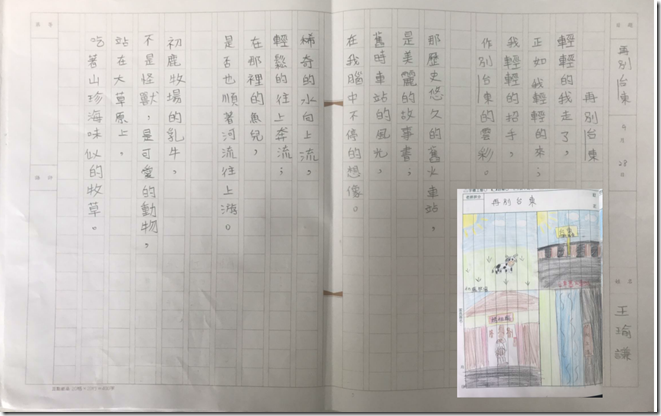 再別台東
4月28日
王瑜謙
再別台東
輕輕的我走了，
正如我輕輕的來；
我輕輕的招手，
作別台東的雲彩。
那歷史悠久的舊火車站，
是美麗的故事書；
舊時車站的風光，
在我腦中不停的想像。
稀奇的水向上流，
輕鬆的往上奔流；
在那裡的魚兒，
是否也順著河流往上游。
初鹿牧場的乳牛，
不是怪獸，是可愛的動物，
站在大草原上，
吃著山珍海味似的牧草。
再別台東